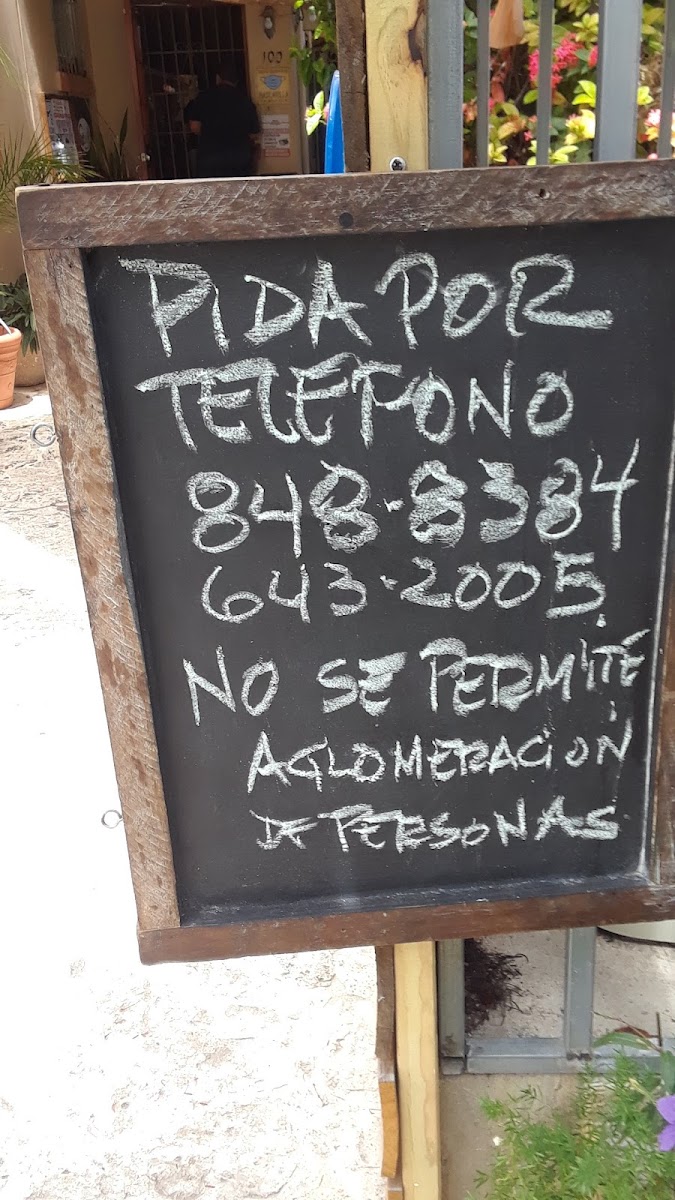 100
PIDA POR
TELEFONO
848-8384
643-2005
NO SE PERMITE
AGLOMERACION
DE PERSONAS